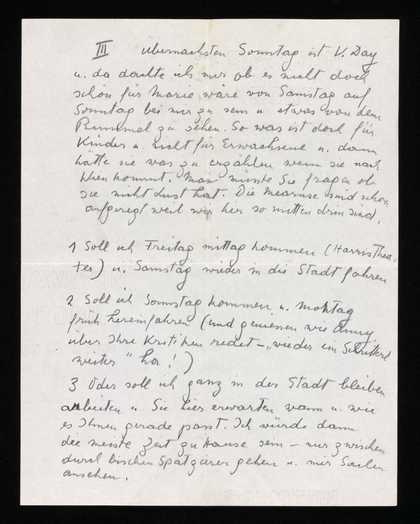 III übernächsten Sonntag ist V. Day
u. da dachte ich mir ob es nicht doch
schön für Marie wäre von Samstag auf
Sonntag bei mir zu sein u. etwas von dem
Rummel zu sehen. So was ist doch für
Kinder u. nicht für Erwachsene u. dann
hätte sie was zu erzählen wenn sie nach
Wien kommt. Man müsste Sie fragen ob
sie nicht Lust hat. Die sind schon
aufgeregt weil wir hier so mitten drin sind.
1 Soll ich Freitag mittag kommen (Harris Thea-
ter) u. Samstag wieder in die Stadt fahren
2 Soll ich Sonntag kommen u. Montag
früh hereinfahren (und geniessen wie
über Ihre Kritiken redet – "wieder im
weiter" ha!)
3 Oder soll ich ganz in der Stadt bleiben
arbeiten u Sie hier erwarten wann u. wie
es Ihnen gerade passt. Ich würde dann
die meiste Zeit zu Hause sein – nur zwischen
durch bischen Spatzieren gehen u. mir
ansehen.